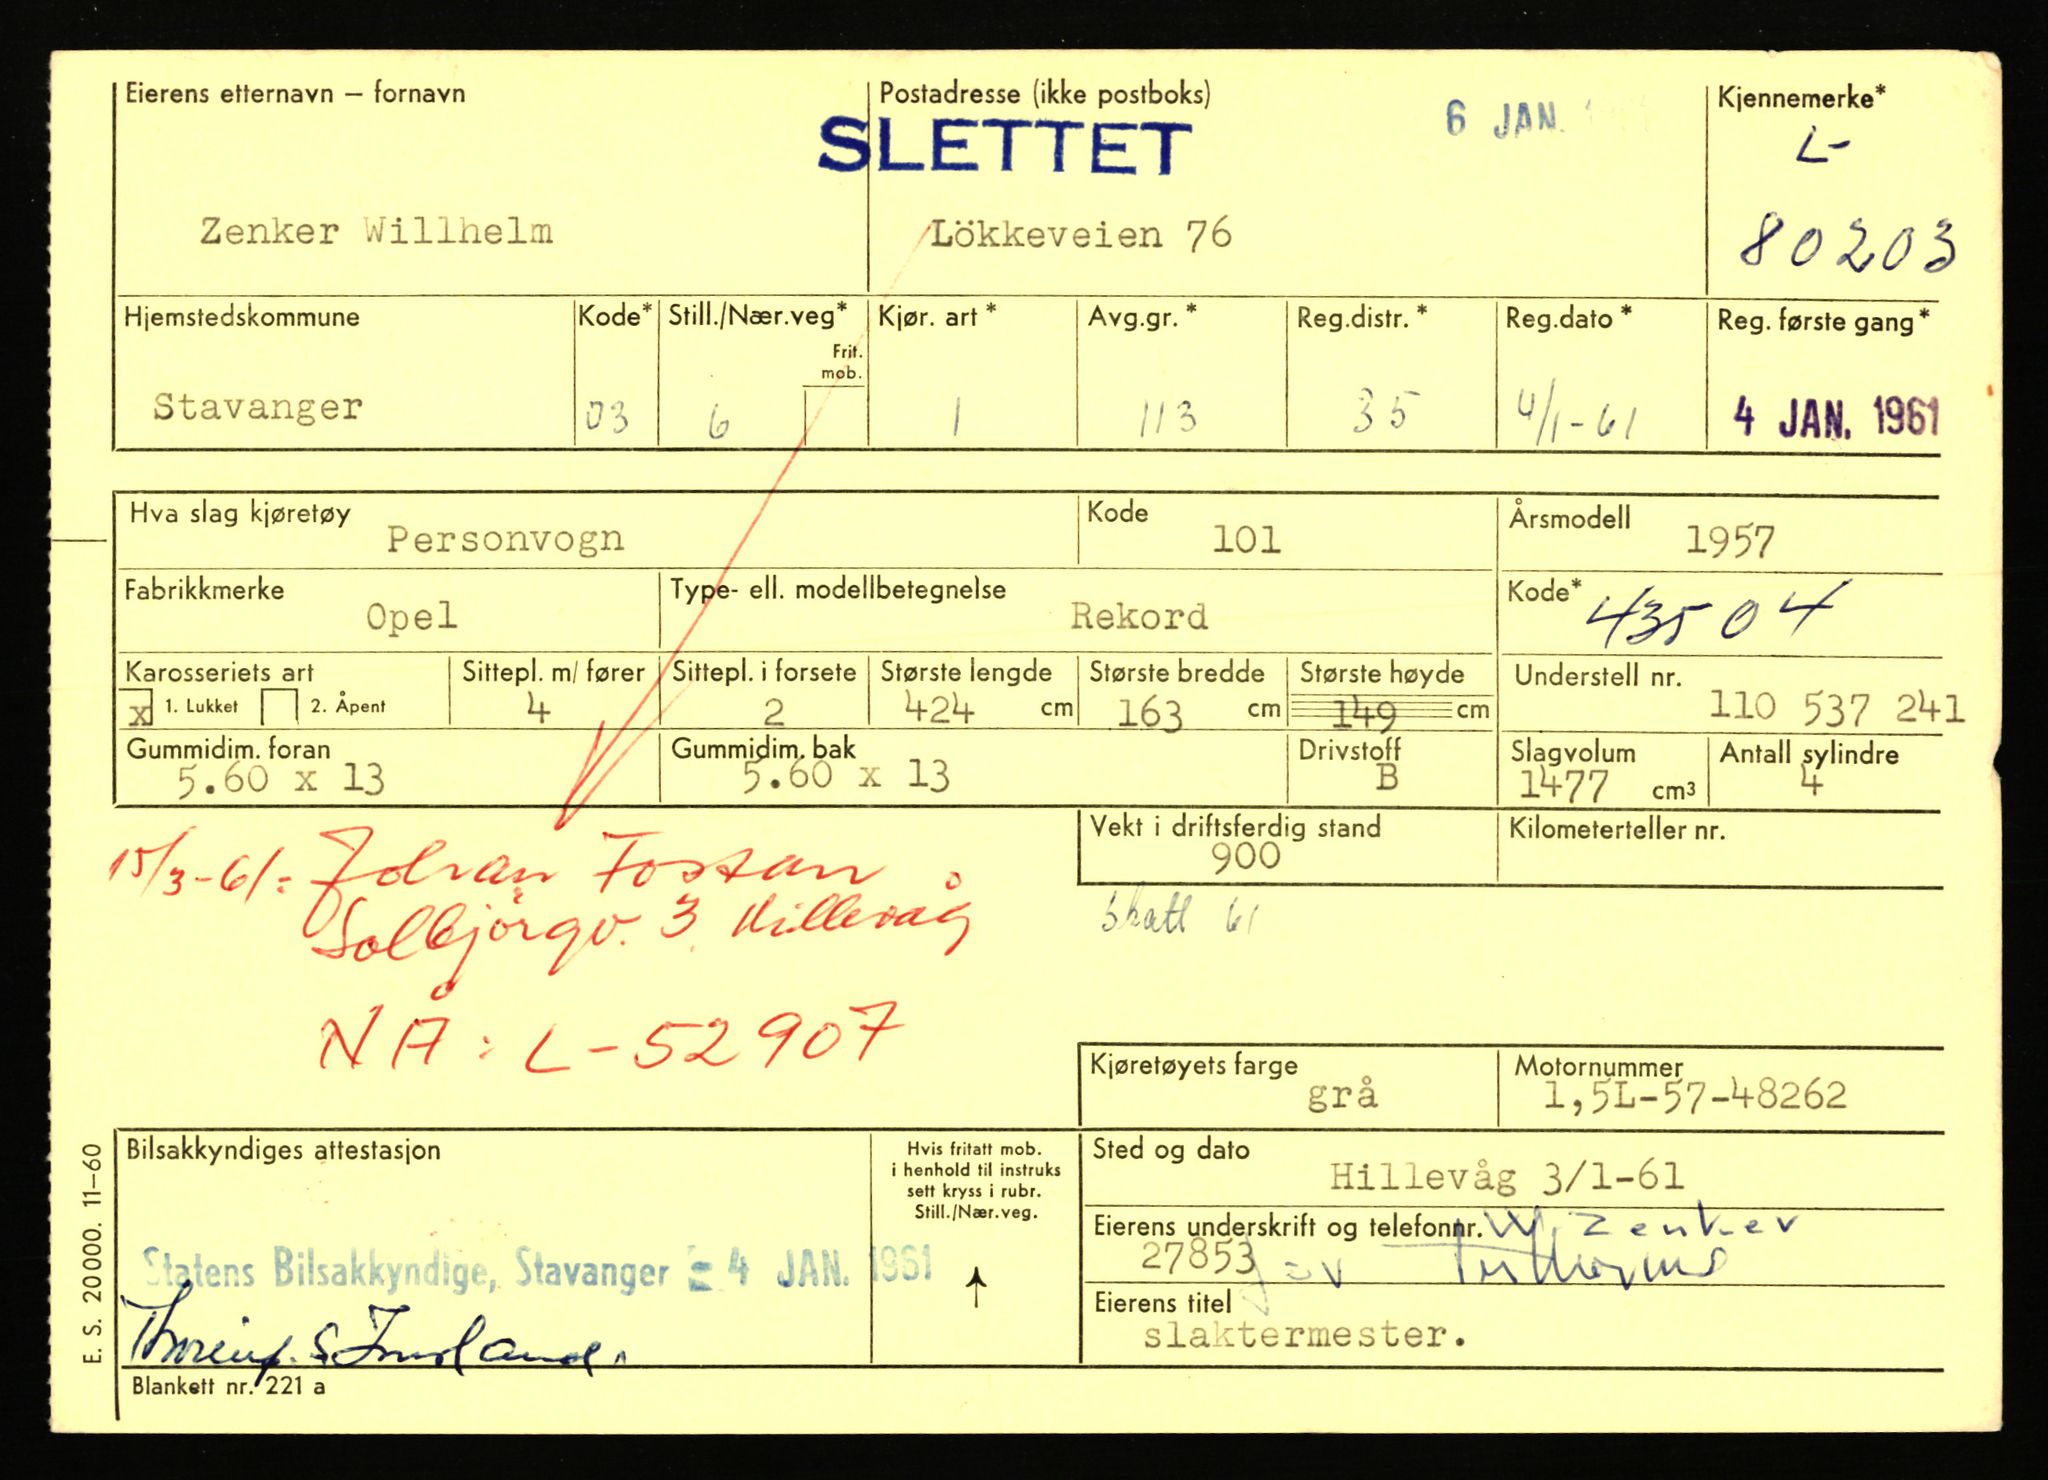 Eierens etternavn – fornavn
Zenker Willhelm
Postadresse (ikke postboks)
SLETTET
6 JAN.
Lökkeveien 76
Kjennemerke*
L-
80203
Hjemstedskommune
Stavanger
Kode*
03
Still./Nær.veg*
Frit. mob.
6
Kjør. art *
1
Avg.gr. *
113
Reg.distr. *
35
Reg.dato *
4/1-61
Reg. første gang*
4 JAN. 1961
Hva slag kjøretøy
Personvogn
Kode
101
Årsmodell
1957
Fabrikkmerke
Opel
Type- ell. modellbetegnelse
Rekord
Kode*
43504
Karosseriets art
x 1. Lukket 2. Åpent
Sittepl. m/ fører
4
Sittepl. i forsete
2
Største lengde
424 cm
Største bredde
163 cm
Største høyde
149 cm
Understell nr.
110 537 241
Gummidim. foran
5.60 x 13
Gummidim. bak
5.60 x 13
Drivstoff
B
Slagvolum
1477 cm³
Antall sylindre
4
Vekt i driftsferdig stand
900
Kilometerteller nr.
15/3-61: Johan Fostan
Solbjörgv. 3 Hillevåg
NÅ: L-52907
skatt 61
Kjøretøyets farge
grå
Motornummer
1,5L-57-48262
Bilsakkyndiges attestasjon
Statens Bilsakkyndige, Stavanger = 4 JAN. 1961
Hvis fritatt mob.
i henhold til instruks
sett kryss i rubr.
Still./Nær.veg.
Sted og dato
Hillevåg 3/1-61
Eierens underskrift og telefonnr. W. Zenker
27853
Eierens titel
slaktermester.
Blankett nr. 221 a
E. S. 20000. 11–60